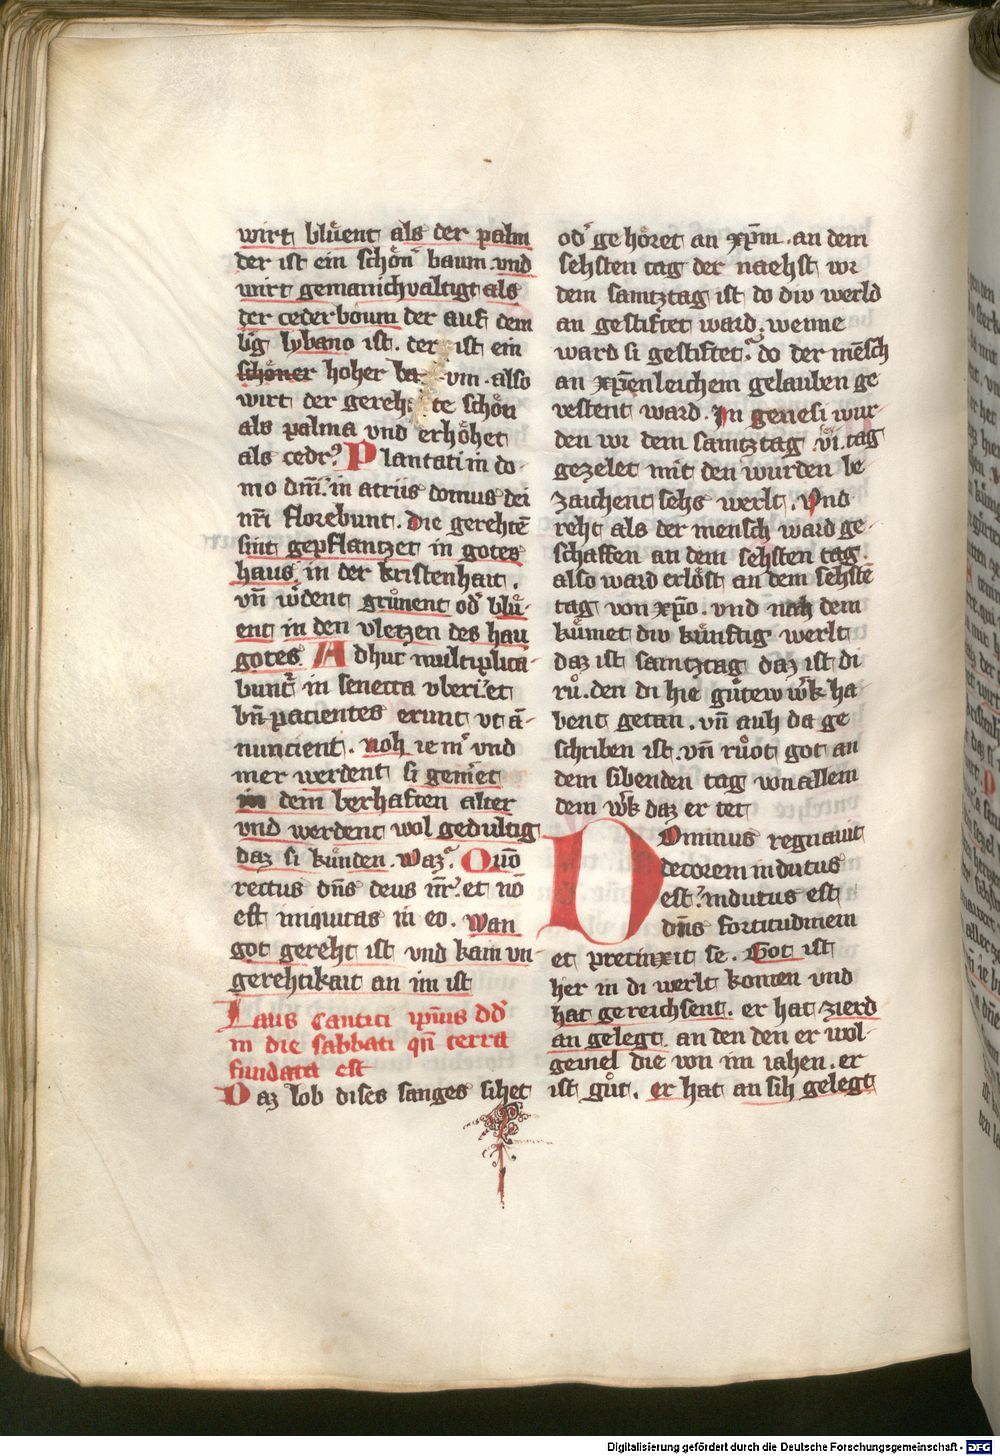 wirt blu̓ent als der palm
der ist ein schoͤn baum. vnd
wirt gemanichvaltigt als
der cederboum der auf dem
b̓g lybano ist. der ist ein
schoͤner hoher ba vm. also
wirt der gereh te schoͤn
als palma vnd erhoͤhet
als cedr? Plantati in do-
mo dn̄i. in atriis domus dei
nr̄i florebunt. Die gerehtē
sint gepflantzet in gotes
haus in der kristenhait.
vn̄ w̓dent gruͤnent od̓ bluͤ-
ent in den vletzen des hau
gotes. Adhuc multiplica-
bunt̓ in senecta vberi. et
bn̄ pacientes erunt vt ā-
nuncient. noh ie m̓ vnd
mer werdent si gemert
in dem berhaften alter
vnd werdent wol gedultig
daz si kuͤnden. Waz? Quō
rectus dn̄s deus nr̄. et nō
est iniquitas in eo. Wan
got gereht ist vnd kain un-
gerehtikait an im ist
Laus Cantici ip̄ius dd̓
in die sabbati qn̄ terra
fundata est
Daz lob dises sanges sihet
od̓ gehoͤret an xp̄m. an dem
sehsten tag der naehst vor
dem samtztag ist do div werld
an gestiftet ward. wenne
ward si gestiftet? do der mēsch
an xp̄enleichem gelauben ge
vestent ward. In genesi wur-
den vor dem samtztag .vi. tag
gezelet mit den wurden be-
zaichent sehs werlt. Vnd
reht als der mensch ward ge-
schaffen an dem sehsten tag.
also ward erloͤst an dem sehstē
tag von xp̄o. vnd nah dem
kuͤmet div kuͤnftig werlt
daz ist samtztag daz ist di
ruͦ. den di hie guͤtew w̓k ha-
bent getan. vn̄ auh da ge
schriben ist. vn̄ ruͦot got an
dem sibenden tag von allem
dem w̓k daz er tet
Dominus regnauit
decorem indutus
est. indutus est
dn̄s fortitudinem
et precinxit se. Got ist
her in di werlt komen vnd
hat gereichsent. er hat zierd
an gelegt. an den den er wol-
geuiel die von im iahen. er
ist guͦt. er hat an sih gelegt
Digitalisierung gefördert durch die Deutsche Forschungsgemeinschaft - DFG